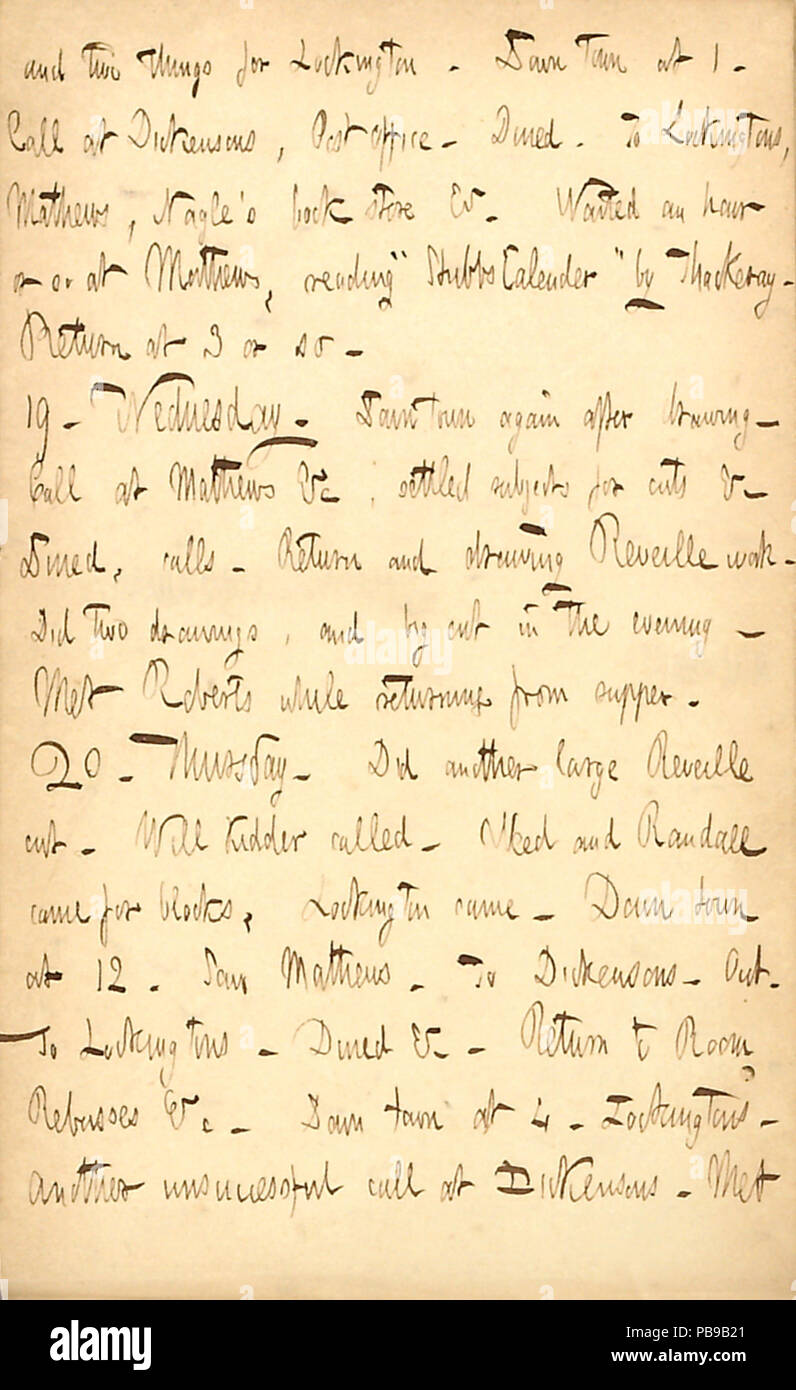 and two things for Lockington - Down town at 1 -
Call at Dickensons, Post Office - Dined - To Lockingtons,
Mathews, Nagle's book store &c. Waited an hour
or so at Mathews, reading "Stubbs Calender" by Thackeray -
Return at 3 or so -
19 - Wednesday - Down town again after drawing -
Call at Mathews &c, settled subjects for cuts &c -
Dined, calls - Return and drawing Reveille work -
Did two drawings, and big cut in the evening -
Met Roberts while returning from supper -
20 - Thursday - Did another large Reveille
cut - Will Kidder called - and Randall
came for blocks, Lockington came - Down town
at 12 - Saw Mathews - To Dickensons - Out -
To Lockingtons - Dined &c - Return to Room,
Rebusses &c - Down town at 4 - Lockingtons -
Another unsuccessful call at Dickensons - Met
alamy
alamy
alamy
alamy
Image ID: PB9B21
www.alamy.com